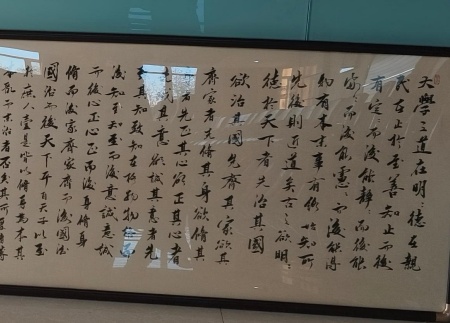 大學之道在明〻德在親
民在止於至善知止而後
有定〻而後能靜〻而後能
安〻而後能慮〻而後能得
物有本末事有終始知所
先後則近道矣古之欲明〻
德於天下者先治其國
欲治其國先齊其家欲
齊家者先脩其身欲脩其
者先正其心欲正其心者
誠其意欲誠其意者先
致其知致知在格物物格而
後知至知至而後意誠意誠
而後心正心正而後身脩身
脩而後家齊家齊而後國治
國治而後天下平自天子以至
於庶人壹是皆以脩身為本其
本亂而末治者否矣其所厚者薄